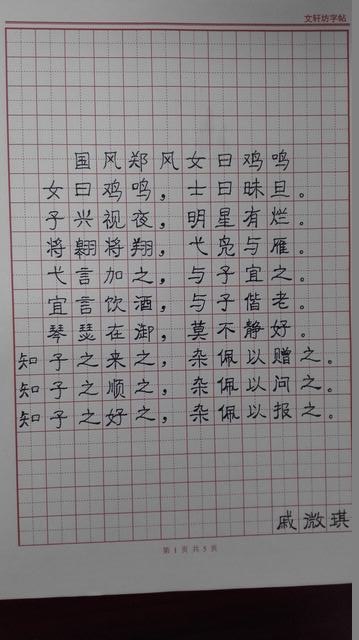 文轩坊字帖
国风郑风女曰鸡鸣
女曰鸡鸣，士曰昧旦。
子兴视夜，明星有烂。
将翱将翔，弋凫与雁。
弋言加之，与子宜之。
宜言饮酒，与子偕老。
琴瑟在御，莫不静好。
知子之来之，杂佩以赠之。
知子之顺之，杂佩以问之。
知子之好之，杂佩以报之。
戚微琪
第 1 页 共 5 页